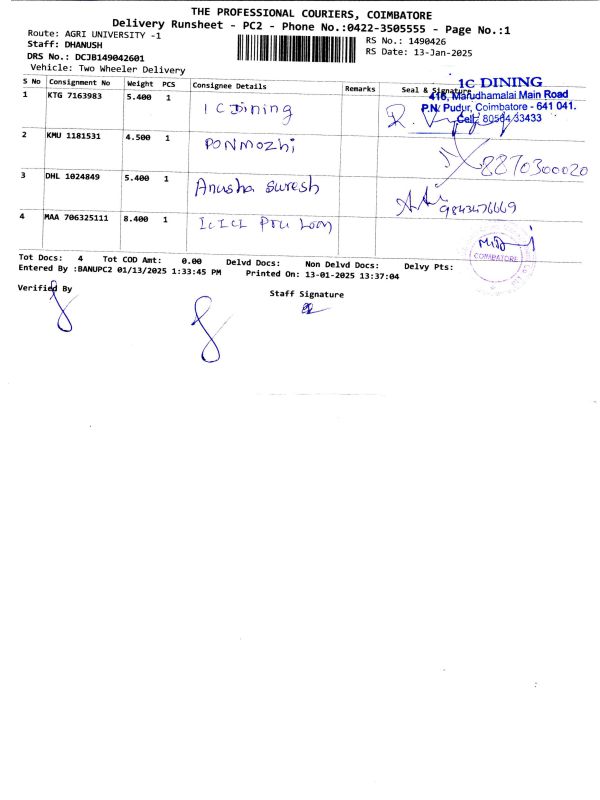 THE PROFESSIONAL COURIERS, COIMBATORE
Delivery Runsheet - PC2 - Phone No.:0422-3505555 - Page No.:1
Route: AGRI UNIVERSITY -1
RS No.: 1490426
Staff: DHANUSH
RS Date: 13-Jan-2025
DRS No.: DCJB149042601
Vehicle: Two Wheeler Delivery
S No Consignment No Weight PCS Consignee Details Remarks Seal & Signature
1 KTG 7163983 5.400 1 1C Dining
1C DINING
416, Marudhamalai Main Road
P.N. Pudur, Coimbatore - 641 041.
Cell: 80564 33433
2 KMU 1181531 4.500 1 PONMOZhi 8270300020
3 DHL 1024849 5.400 1 Anusha Suresh 9843476669
4 MAA 706325111 8.400 1 ICICI Pru
COIMBATORE
Tot Docs: 4 Tot COD Amt: 0.00 Delvd Docs: Non Delvd Docs: Delvy Pts:
Entered By :BANUPC2 01/13/2025 1:33:45 PM Printed On: 13-01-2025 13:37:04
Verified By Staff Signature